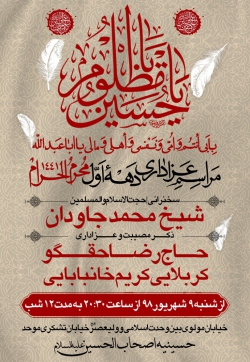 یا مظلوم
یا حسین
بابی انت و امی و نفسی و اهلی و مالی یا اباعبدالله
مراسم عزاداری دهه اول محرم الحرام ۱۴۴۱
سخنرانی: حجت الاسلام والمسلمین
شیخ محمد جاودان
ذکر مصیبت و عزاداری
حاج رضا حقگو
کربلایی کریم خانبابایی
از شنبه ۹ شهریور ۹۸ از ساعت ۲۰:۳۰ به مدت ۱۲ شب
خیابان مولوی بین وحدت اسلامی و ولیعصر خیابان تشکری موحد
حسینیه اصحاب الحسین علیه السلام